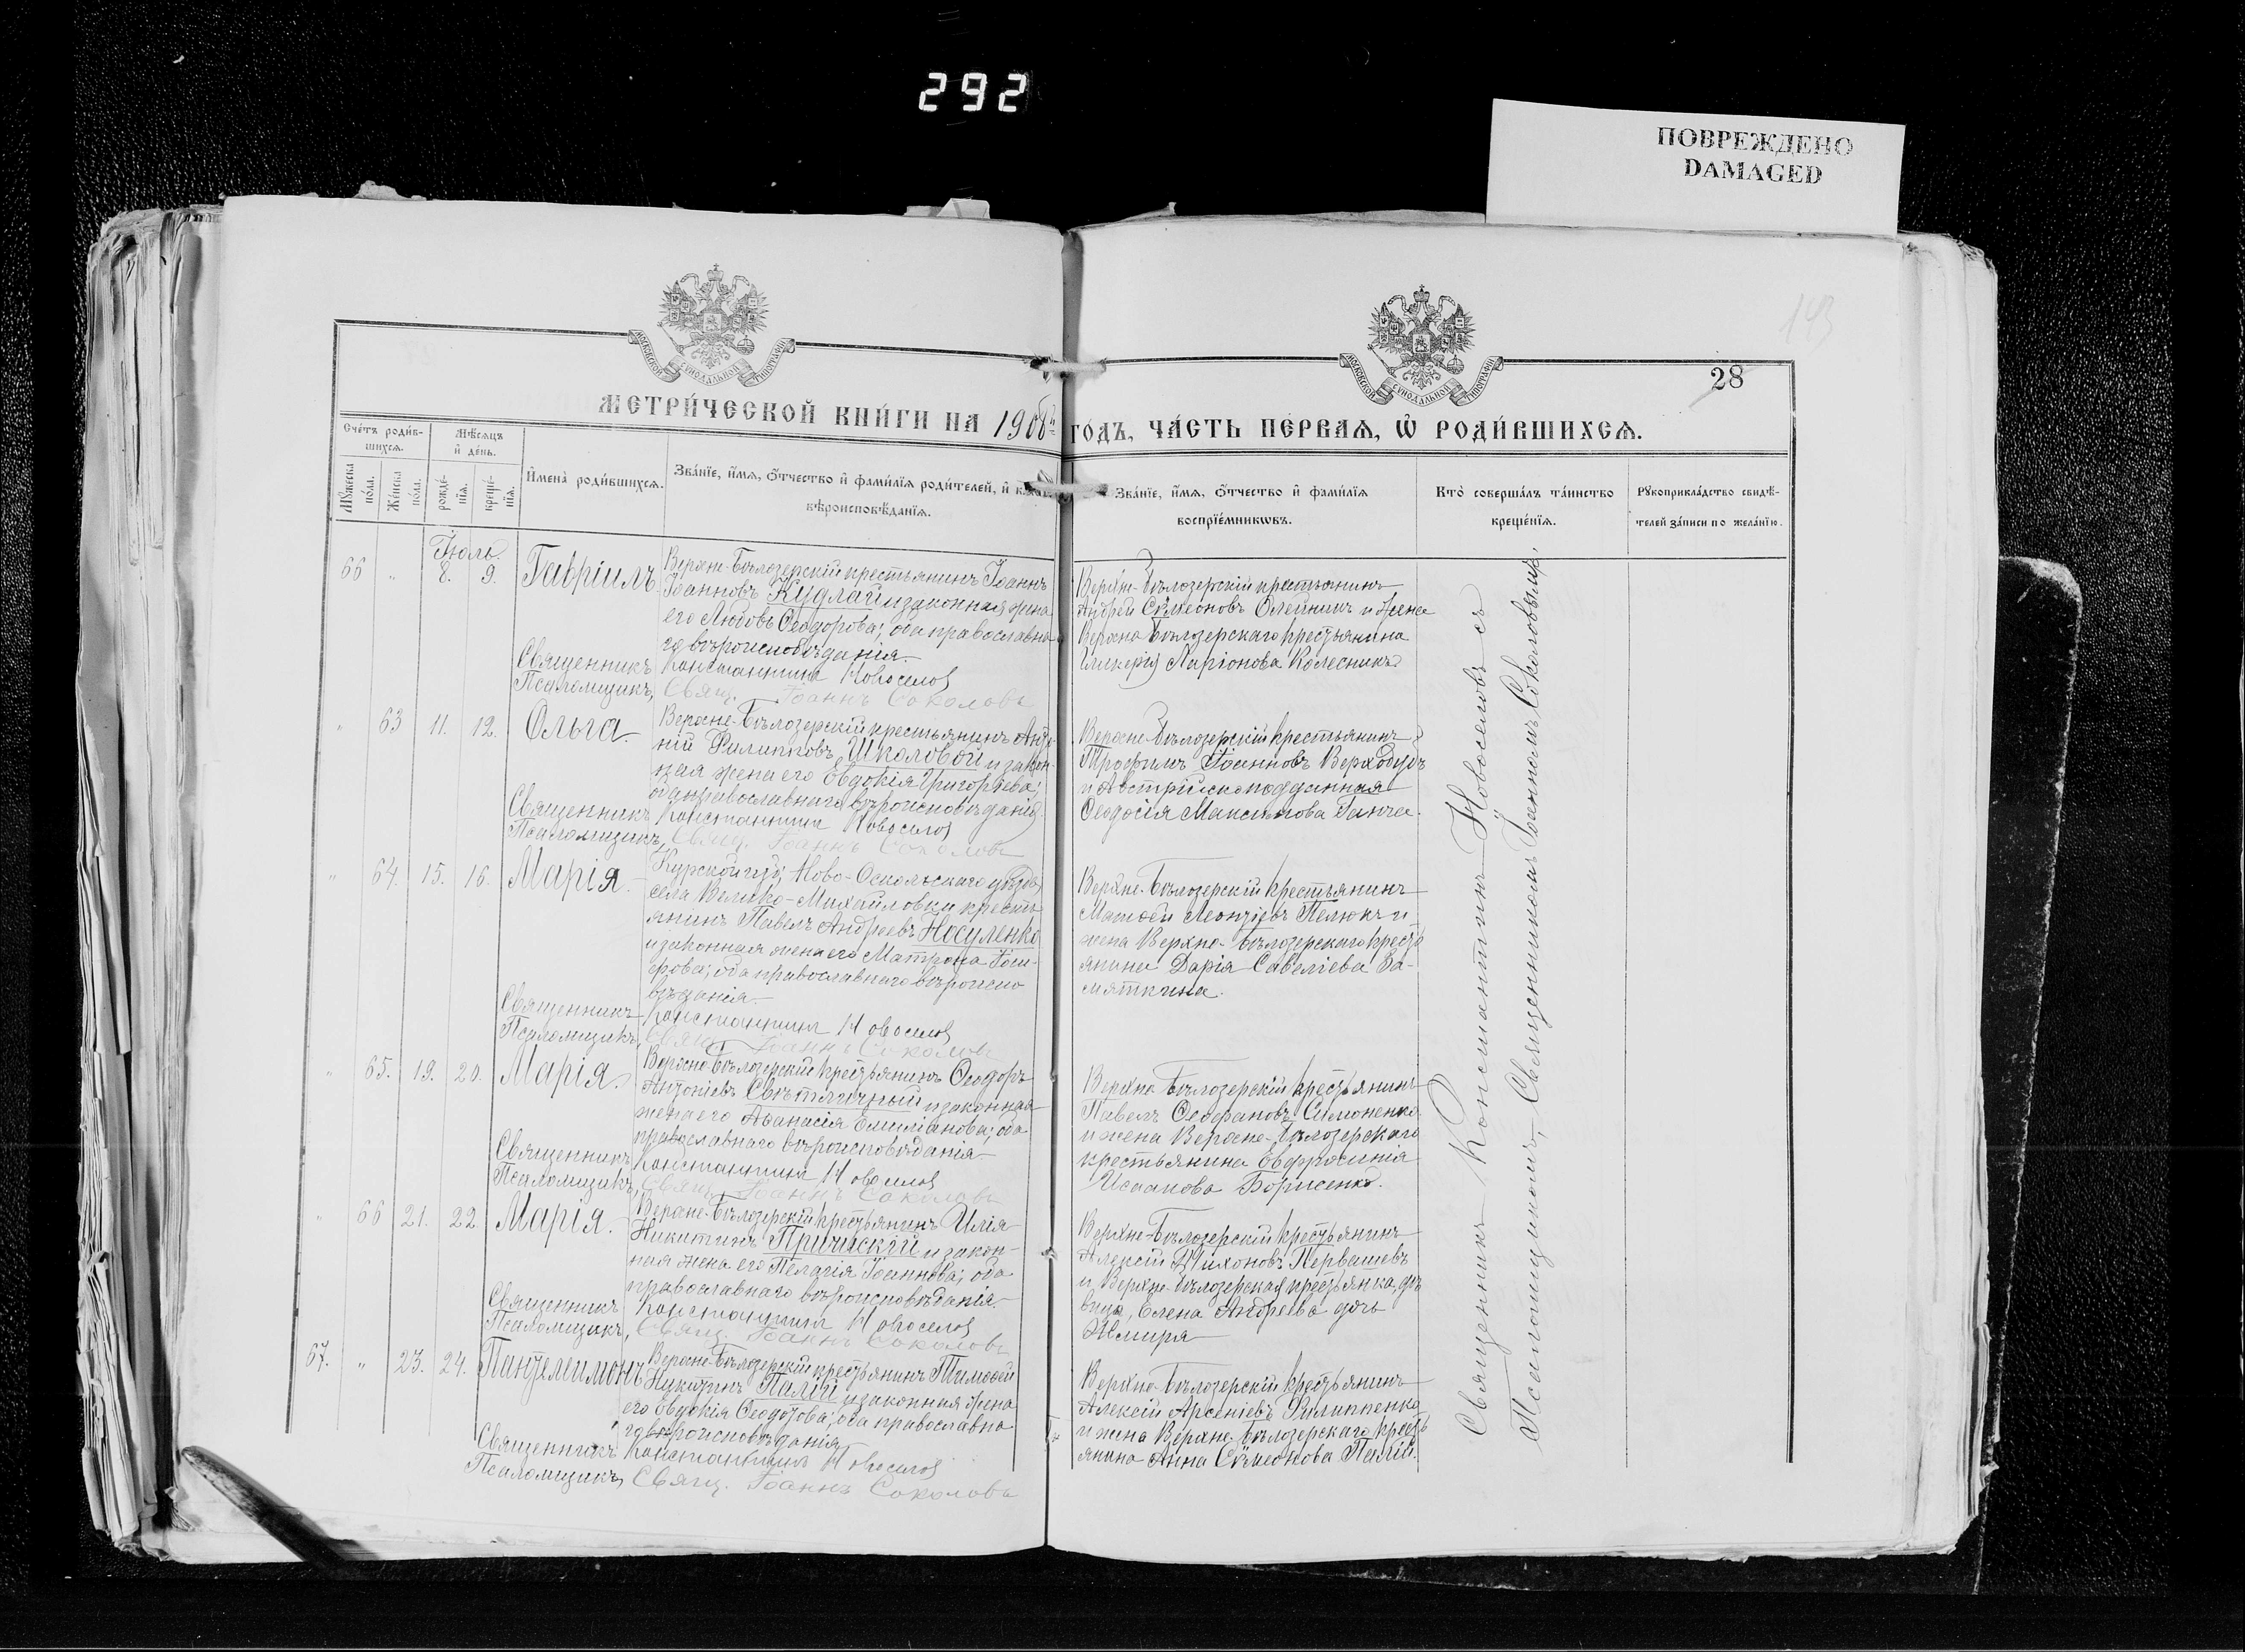 292
ПОВРЕЖДЕНО
DAMAGED
143
28
МОСКОВСКОЙ СѴНОДАЛЬНОЙ ТИПОГРАФІИ
МОСКОВСКОЙ СѴНОДАЛЬНОЙ ТИПОГРАФІИ
МЕТРИ́ЧЕСКОЙ КНИ́ГИ НА 1908й
ГОДЪ, ЧА́СТЬ ПЕ́РВАѦ, Ѡ҆ РОДИ́ВШИХСѦ.
Сче́тъ роди́в-
шихсѧ.
Мѣ́сѧцъ
и҆ де́нь.
Мꙋ́жеска по́ла.
Же́нска по́ла.
рожде́-
нїѧ.
креще́-
нїѧ.
И҆мена̀ роди́вшихсѧ.
Зва́нїе, и҆́мѧ, ѻ҆́тчество и҆ фами́лїѧ роди́телей, и҆
вѣроисповѣ́данїѧ.
Зва́нїе, и҆́мѧ, ѻ҆́тчество и҆ фами́лїѧ
воспрїе́мникѡвъ.
Кто̀ соверша́лъ та́инство
креще́нїѧ.
Рꙋкоприкла́дство свидѣ́-
телей за́писи по жела́нїю.
Іюль
66 " 8. 9. Гавріилъ
Верхне-Бѣлозерскій крестьянинъ Іоаннъ
Іоанновъ Кудлай и законная жена
его Любовь Ѳеодорова; оба православна
го вѣроисповѣданія.
Священникъ Константинъ Новоселов
Псаломщикъ, Свящ. Іоаннъ Соколовъ
Верхне-Бѣлозерскій крестьянинъ
Андрей Сѵмеоновъ Олейникъ и жена
Верхне-Бѣлозерскаго крестьянина
Гликерія Ларіонова Колесникъ
" 63 11. 12. Ольга.
Верхне-Бѣлозерскій крестьянинъ Анто-
ній Филипповъ Школовой и закон-
ная жена его Евдокія Григорьева;
оба православнаго вѣроисповѣданія.
Священникъ Константинъ Новоселов
Псаломщикъ, Свящ. Іоаннъ Соколовъ
Верхне-Бѣлозерскій крестьянинъ
Трофимъ Іоанновъ Верходубъ
и Австрійскоподданная
Ѳеодосія Максимова Ганча.
" 64. 15. 16. Марія.
Курской губ, Ново-Оскольскаго уѣзда,
села Велико-Михайловки кресть
янинъ Павелъ Андреевъ Носуленко
и законная жена его Матрона Іоси-
фова; оба православнаго вѣроиспо
вѣданія.
Священникъ Константинъ Новоселов
Псаломщикъ, Свящ. Іоаннъ Соколовъ
Верхне-Бѣлозерскій крестьянинъ
Матѳей Леонтіевъ Пелюхъ и
жена Верхне-Бѣлозерскаго кресть
янина Дарія Савеліева За-
мяткина.
" 65. 19. 20. Марія.
Верхне-Бѣлозерскій крестьянинъ Ѳеодоръ
Антоніевъ Свѣтличный и законная
жена его Аѳанасія Емиліанова; оба
православнаго вѣроисповѣданія.
Священникъ Константинъ Новоселов
Псаломщикъ, Свящ. Іоаннъ Соколовъ
Верхне-Бѣлозерскій крестьянинъ
Павелъ Ѳеофановъ Симоненко
и жена Верхне-Бѣлозерскаго
крестьянина Евфросинія
Исаакова Борисенко.
" 66 21. 22. Марія.
Верхне-Бѣлозерскій крестьянинъ Илія
Никитинъ Причискій и закон-
ная жена его Пелагія Іоаннова; оба
православнаго вѣроисповѣданія.
Священникъ Константинъ Новоселов
Псаломщикъ, Свящ. Іоаннъ Соколовъ
Верхне-Бѣлозерскій крестьянинъ
Алексій Тихоновъ Первашевъ
и Верхне-Бѣлозерская крестьянка, дѣ
вица, Елена Андреева дочь
Жмиря
67. " 23. 24. Пантелеимонъ
Верхне-Бѣлозерскій крестьянинъ Тимоѳей
Никитинъ Палій и законная жена
его Евдокія Ѳеодотова; оба православна
го вѣроисповѣданія.
Священникъ Константинъ Новоселов
Псаломщикъ, Свящ. Іоаннъ Соколовъ
Верхне-Бѣлозерскій крестьянинъ
Алексій Арсеніевъ Филиппенко
и жена Верхне-Бѣлозерскаго кресть
янина Анна Сѵмеонова Палій.
Священникъ Константинъ Новоселовъ съ
Псаломщикомъ, Священникомъ Іоанномъ Соколовымъ.